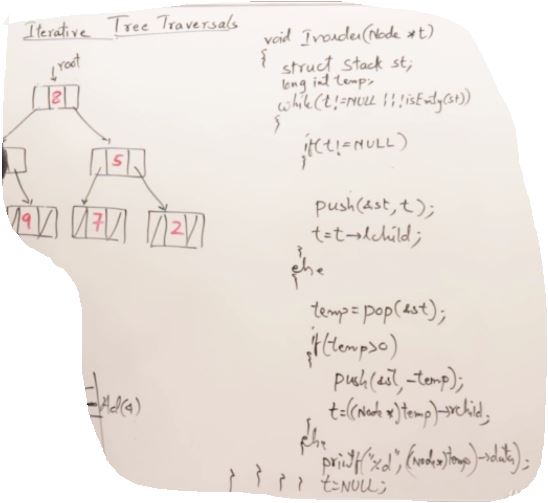 Iterative Tree Traversals
root
8
5
9 7 2
Ad(4)
void Inorder(Node *t)
{
struct stack st;
long int temp;
while(t!=NULL || !isEmty(st))
{
if(t!=NULL)
{
push(&st, t);
t=t→lchild;
}
else
{
temp=pop(&st);
if(temp>0)
{
push(&st, -temp);
t=((Node*)temp)→rchild;
}
else
{
printf("%d", (Node*)temp)→data);
t=NULL;
} } } }